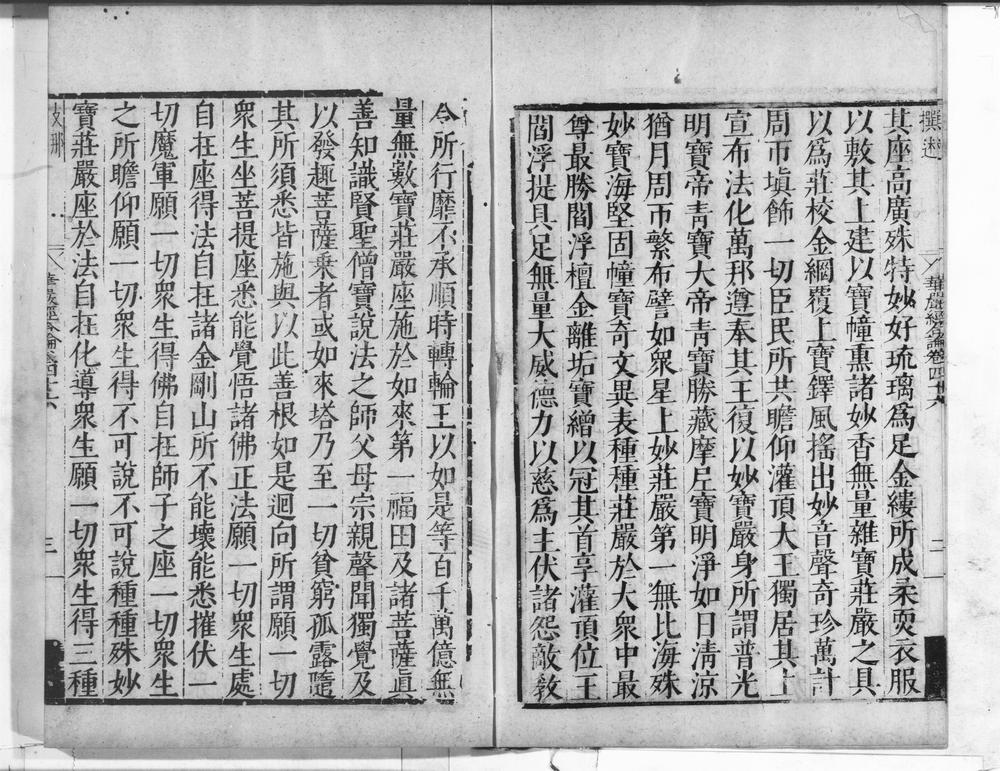 其座高廣殊特妙好琉璃爲足金縷所成柔耎衣服
以敷其上建以寶幢熏諸妙香無量雜寶莊嚴之具
以爲莊校金網覆上寶鐸風搖出妙音聲奇珍萬計
周帀塡飾一切臣民所共瞻仰灌頂大王獨居其上
宣布法化萬邦遵奉其王復以妙寶嚴身所謂普光
明寶帝青寶大帝青寶勝藏摩尼寶明淨如日淸涼
猶月周帀繁布譬如衆星上妙莊嚴第一無比海殊
妙寶海堅固幢寶奇文異表種種莊嚴於大衆中最
尊最勝閻浮檀金離垢寶繒以冠其首享灌頂位王
閻浮提具足無量大威德力以慈爲主伏諸怨敵敎
令所行靡不承順時轉輪王以如是等百千萬億無
量無數寶莊嚴座施於如來第一福田及諸菩薩眞
善知識賢聖僧寶說法之師父母宗親聲聞獨覺及
以發趣菩薩乘者或如來塔乃至一切貧窮孤露隨
其所須悉皆施與以此善根如是迴向所謂願一切
衆生坐菩提座悉能覺悟諸佛正法願一切衆生處
自在座得法自在諸金剛山所不能壞能悉摧伏一
切魔軍願一切衆生得佛自在師子之座一切衆生
之所瞻仰願一切衆生得不可說不可說種種殊妙
寶莊嚴座於法自在化導衆生願一切衆生得三種